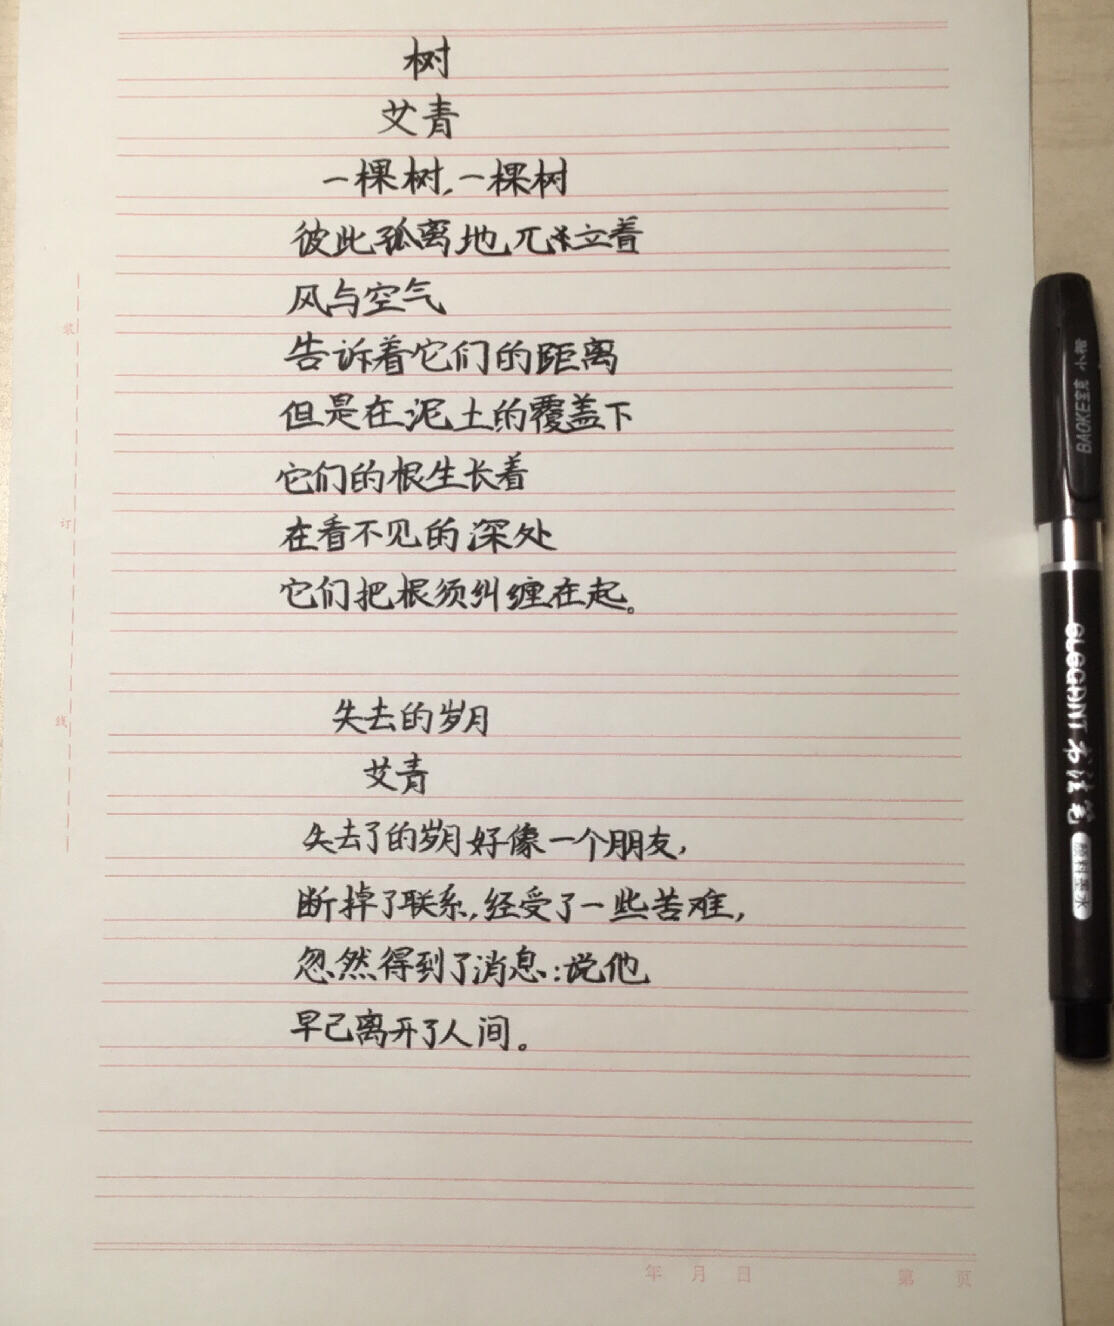 树
艾青
一棵树,一棵树
彼此孤离地兀立着
风与空气
告诉着它们的距离
但是在泥土的覆盖下
它们的根生长着
在看不见的深处
它们把根须纠缠在起。
失去的岁月
艾青
失去了的岁月好像一个朋友,
断掉了联系,经受了一些苦难,
忽然得到了消息:说他
早已离开了人间。
装
订
线
年 月 日
第 页
BAOKE宝克 小楷
书法笔
颜料墨水